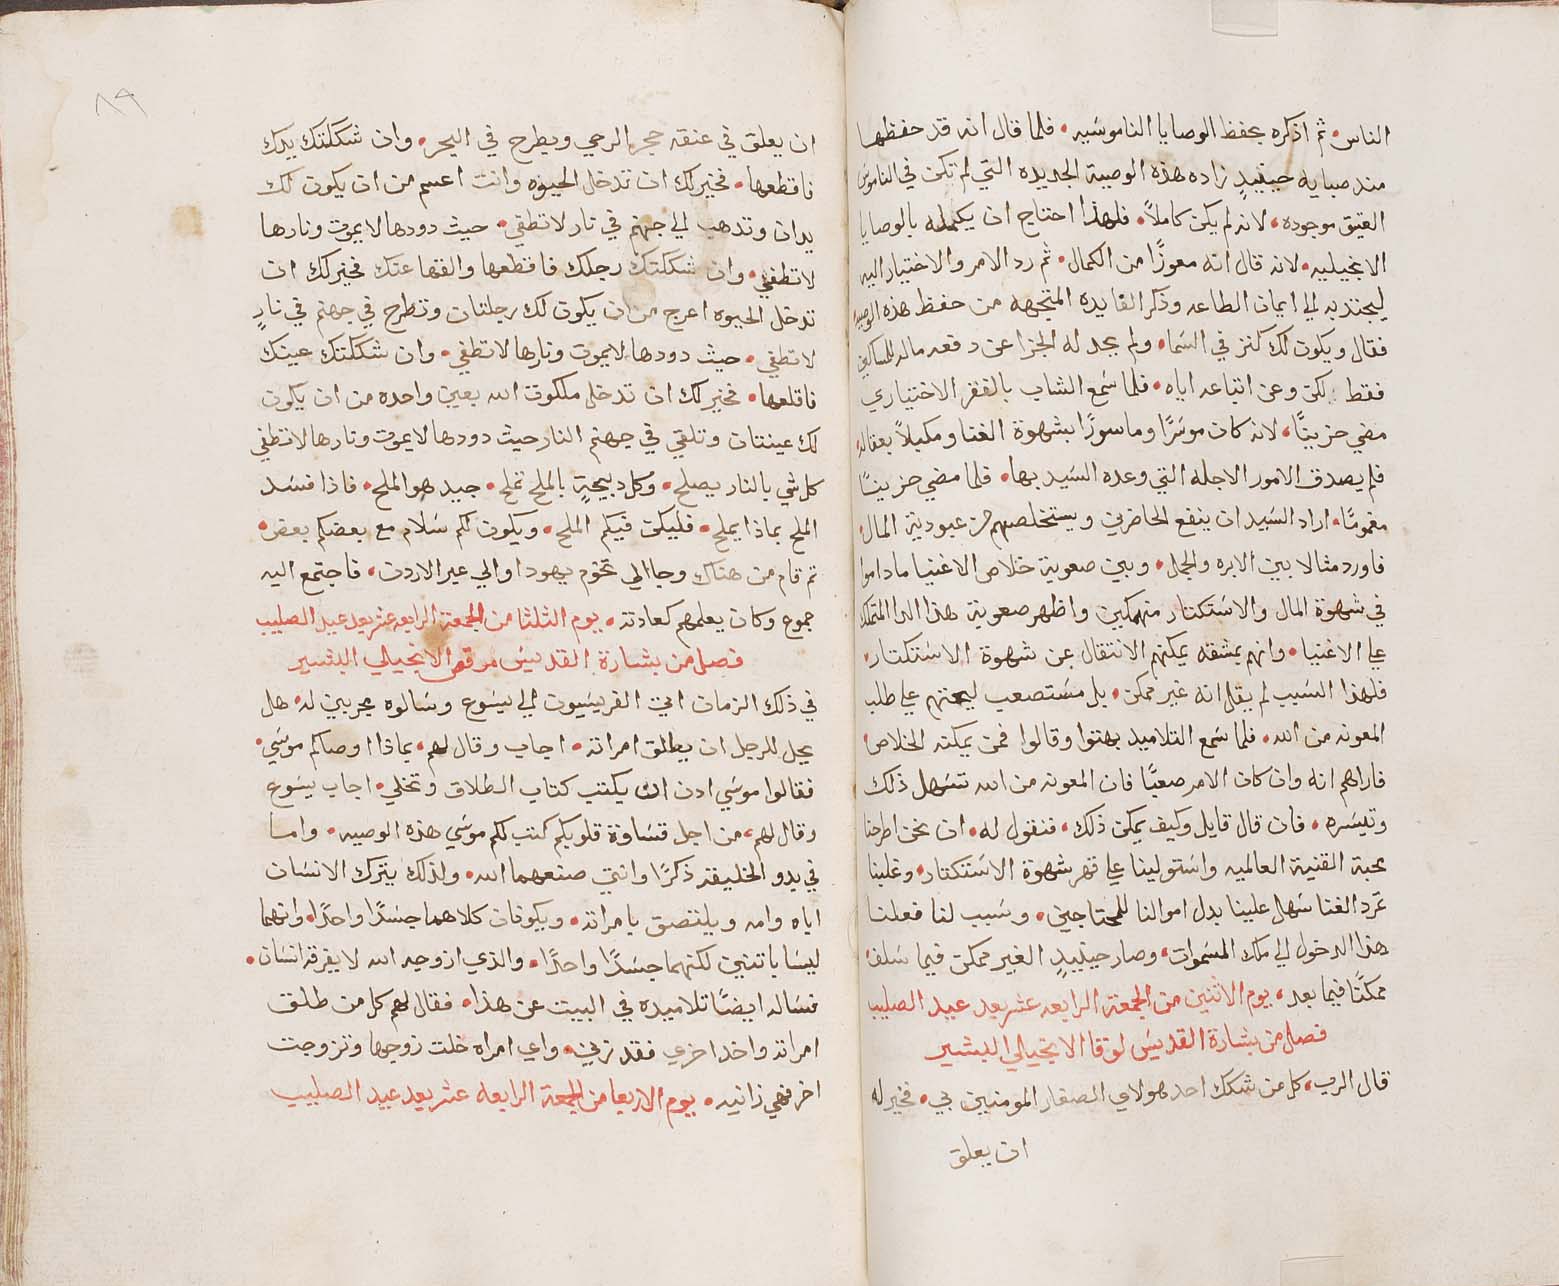 الناس• ثم اذكره بحفظ الوصايا الناموسيه• فلما قال انه قد حفظها
منذ صبايه حينيدٍ زاده هذه الوصية الجديده التي لم تكن في الناموس
العتيق موجوده، لانه لم يكن كاملاً• فلهذا احتاج ان يكمله بالوصايا
الانجيليه• لانه قال انه معوزًا من الكمال• ثم رد الامر والاختيار اليه
ليجتذبه الي ايمان الطاعه وذكر الفايده المتجهه من حفظ هذه الوصيه
فقال ويكون لك كنز في السما• ولم يحد له الجزا عن دفعه ماله للمساكين
فقط لكن وعن اتباعه اياه• فلما سمع الشاب بالفقر الاختياري
مضي حزينًا، لانه كان موسرًا وماسورًا بشهوة الغنا ومكبلاً بعقاله،
فلم يصدق الامور الاجله التي وعده السيد بها• فلما مضي حزينًا
مغمومًا• اراد السيد ان ينفع الحاضرين ويستخلصهم من عبودية المال•
فاورد مثالا بين الابره والجمل• وبين صعوبة خلاص الاغنيا ماداموا
في شهوة المال والاستكثار منهمكين واظهر صعوبة هذا الدا المتملك
علي الاغنيا• وانهم بمشقه يمكنهم الانتقال عن شهوة الاستكثار•
فلهذا السبب لم يقل انه غير ممكن• بل مستصعب ليحثهم علي طلب
المعونه من الله• فلما سمع التلاميد بهتوا وقالوا فمن يمكنه الخلاص•
فاراهم انه وان كان الامر صعبًا فان المعونه من الله تسهل ذلك
وتيسره• فان قال قايل وكيف يمكن ذلك• فنقول له• ان نحن اطرحنا
محبة القنية العالميه واستولينا علي قهر شهوة الاستكثار• وغلبنا
تمرد الغنا سهل علينا بدل اموالنا للمحتاجين• وسبب لنا فعلنا
هذا الدخول الي ملك السموات• وصار حينيدٍ الغير ممكن فيما سلف•
ممكنًا فيما بعد، يوم الاثنين من الجمعة الرابعه عشر بعد عيد الصليب
فصل من بشارة القديس لوقا الانجيلي البشير
قال الرب، كل من شكك احد هولاي الصغار المومنين بي• فخير له
ان يعلق
٨٩
ان يعلق في عنقه حجر الرحي ويطرح في البحر• وان شككتك يدك
فاقطعها• فخير لك ان تدخل الحيوه وانت اعسم من ان يكون لك
يدان وتدهب الي جهنم في نار لا تطفي• حيث دودها لا يموت ونارها
لا تطفي• وان شككتك رجلك فاقطعها والقها عنك فخير لك ان
تدخل الحيوه اعرج من ان يكون لك رجلتان وتطرح في جهنم في نارٍ
لا تطفي• حيث دودها لا يموت ونارها لا تطفي• وان شككتك عينك
فاقلعها• فخير لك ان تدخل ملكوت الله بعين واحده من ان يكون
لك عينتان وتلقي في جهنم النار حيث دودها لا يموت ونارها لا تطفي
كل شي بالنار يصلح• وكل دبيحةٍ بالملح تملح• جيد هو الملح• فاذا فسد
الملح بماذا يملح• فليكن فيكم الملح• ويكون لكم سلام مع بعضكم بعض•
ثم قام من هناك وجا الي تخوم يهودا والي عبر الاردن• فاجتمع اليه
جموع وكان يعلمهم كعادته• يوم الثلثا من الجمعة الرابعه عشر بعد عيد الصليب
فصل من بشارة القديس مرقص الانجيلي البشير
في ذلك الزمان اتي الفريسيون الي يسوع وسالوه مجربين له• هل
يحل للرجل ان يطلق امراته• اجاب وقال لهم• بماذا اوصاكم موسي•
فقالوا موسي ادن ان يكتب كتاب الطلاق وتخلي• اجاب يسوع
وقال لهم، من اجل قساوة قلوبكم كتب لكم موسي هذه الوصيه• واما
في بدو الخليقه ذكرًا وانثي صنعهما الله• ولذلك يترك الانسان
اباه وامه ويلتصق بامراته• ويكونان كلاهما جسدًا واحدًا• وانهما
ليسا باتنين لكنهما جسدًا واحدًا• والذي ازوجه الله لا يفرقه انسان•
فساله ايضًا تلاميده في البيت عن هذا• فقال لهم كل من طلق
امراته واخد اخري فقد زني• واي امراه خلت زوجها وتزوجت
اخر فهي زانيه• يوم الاربعا من الجمعة الرابعه عشر بعد عيد الصليب